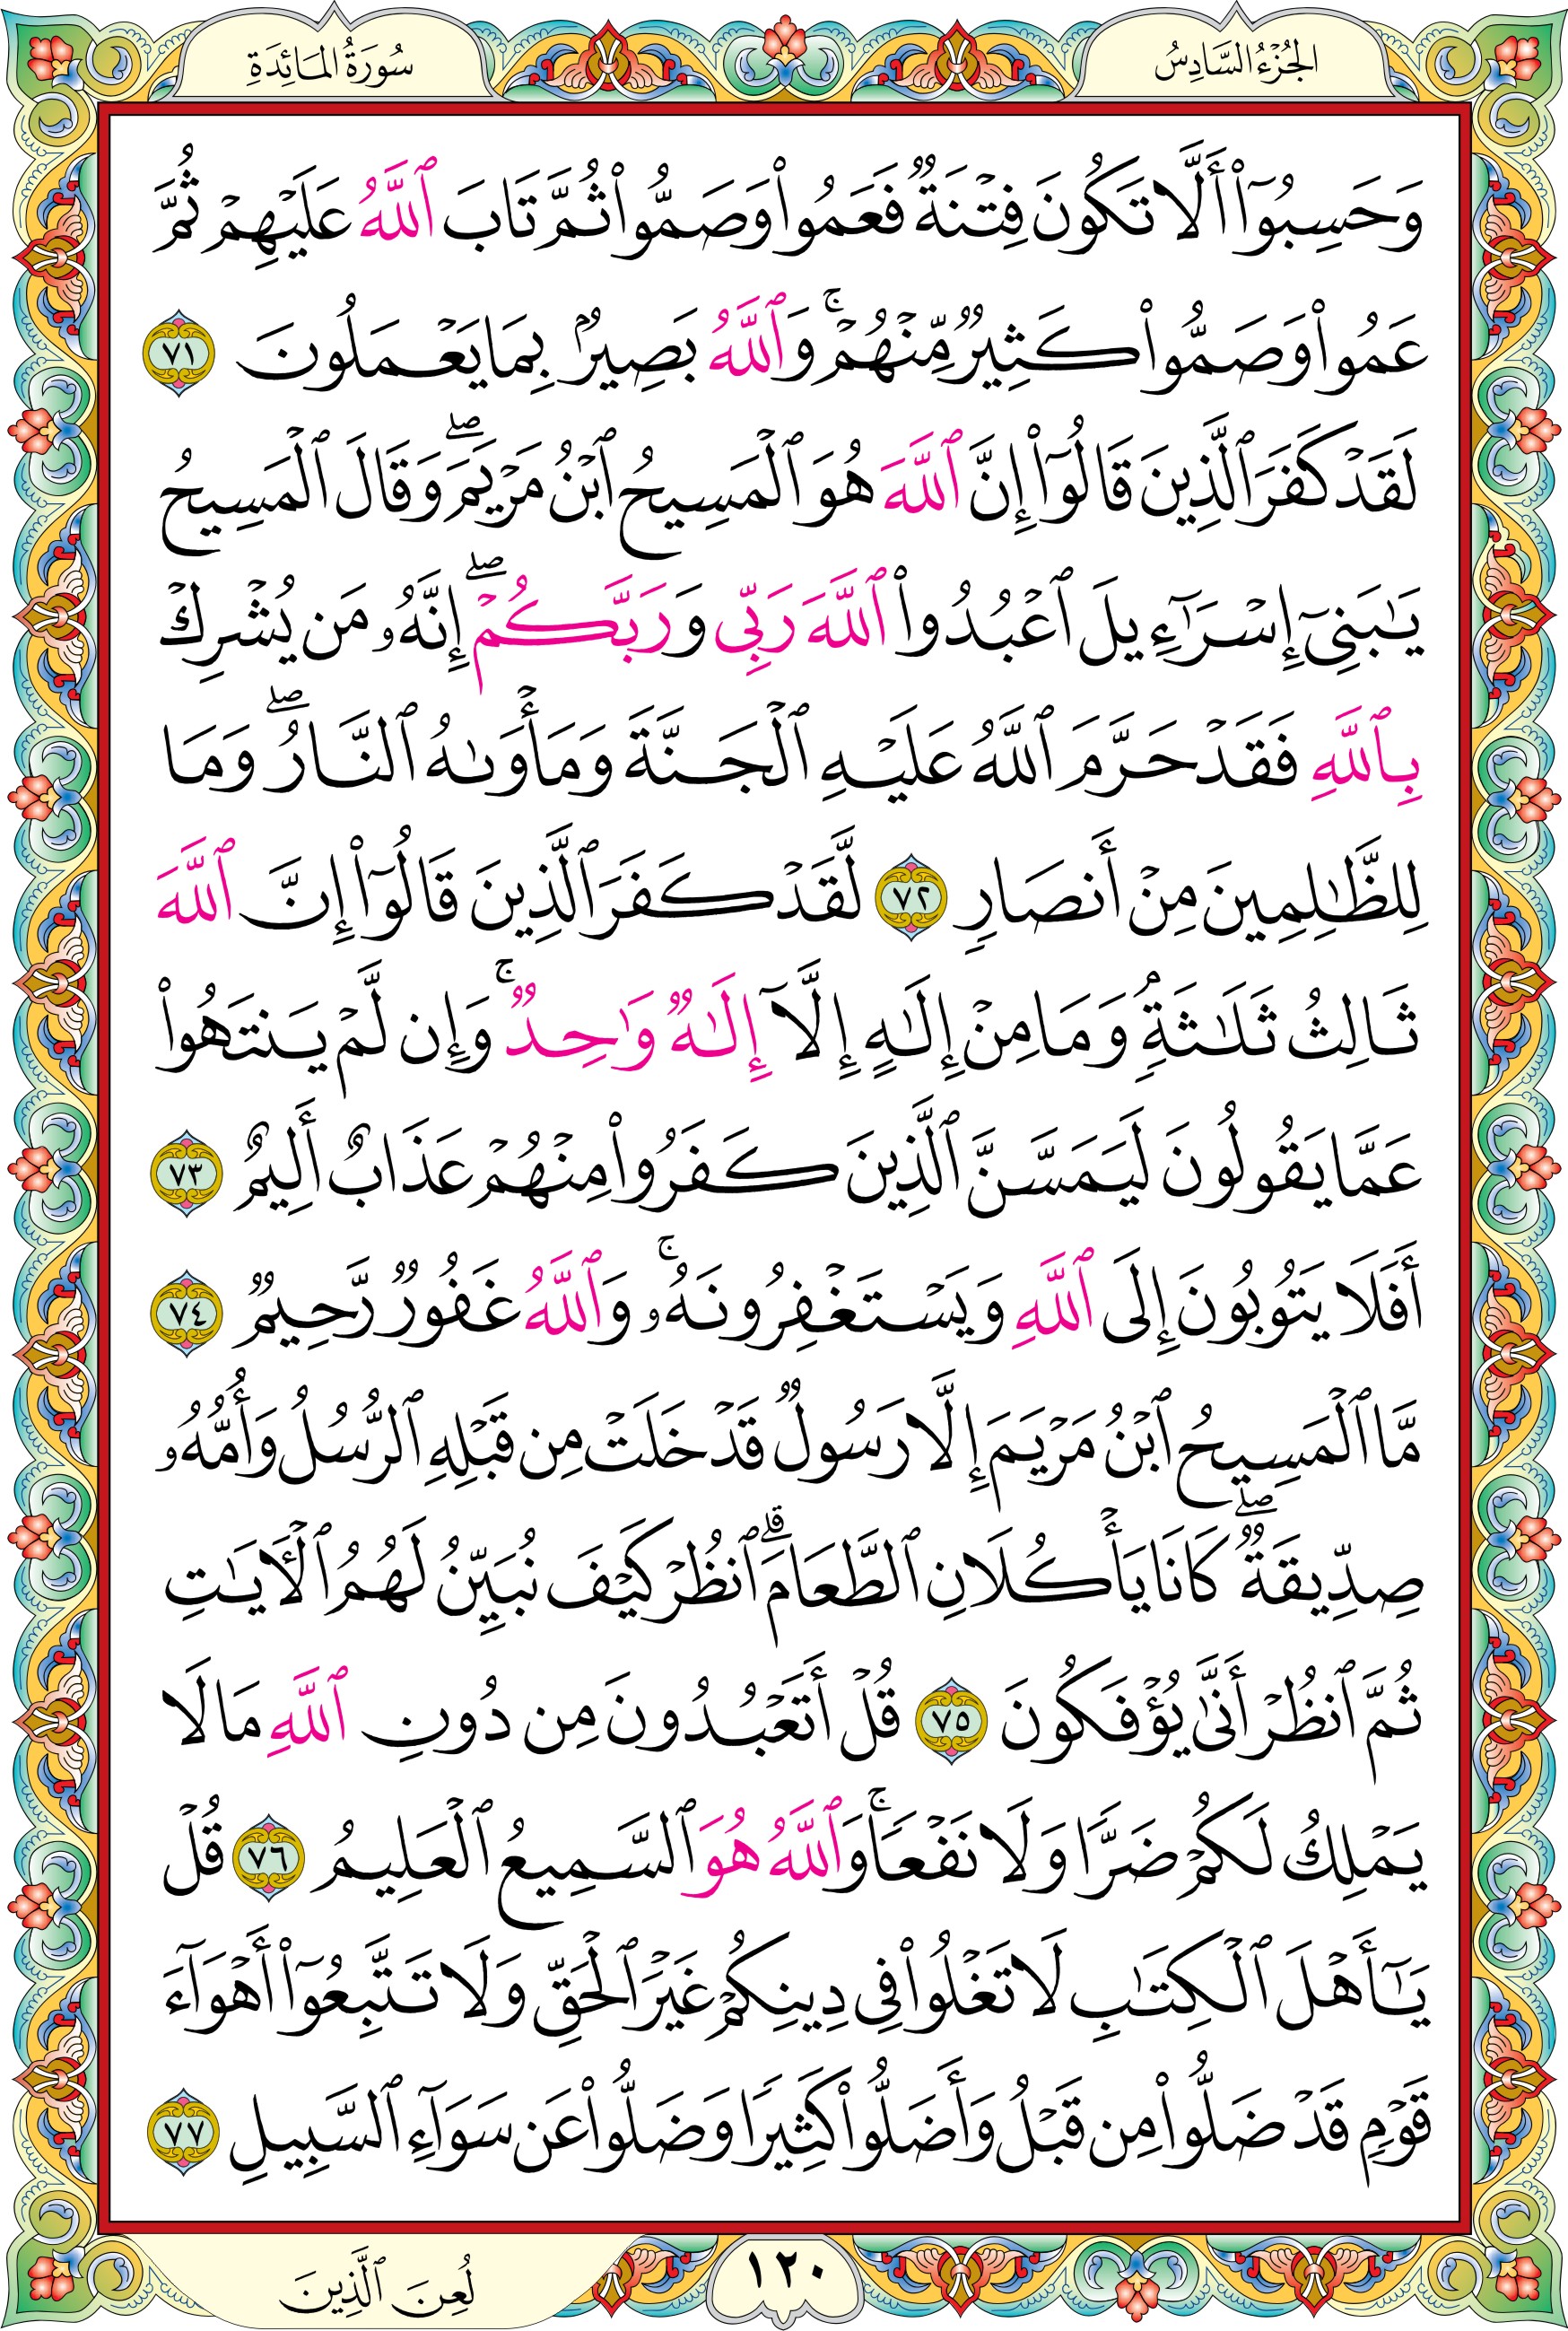 الجُزْءُ السَّادِسُ
سُورَةُ المَائِدَةِ
وَحَسِبُوٓاْ أَلَّا تَكُونَ فِتۡنَةٞ فَعَمُواْ وَصَمُّواْ ثُمَّ تَابَ ٱللَّهُ عَلَيۡهِمۡ ثُمَّ
عَمُواْ وَصَمُّواْ كَثِيرٞ مِّنۡهُمۡۚ وَٱللَّهُ بَصِيرُۢ بِمَا يَعۡمَلُونَ ٧١
لَقَدۡ كَفَرَ ٱلَّذِينَ قَالُوٓاْ إِنَّ ٱللَّهَ هُوَ ٱلۡمَسِيحُ ٱبۡنُ مَرۡيَمَۖ وَقَالَ ٱلۡمَسِيحُ
يَٰبَنِيٓ إِسۡرَٰٓءِيلَ ٱعۡبُدُواْ ٱللَّهَ رَبِّي وَرَبَّكُمۡۖ إِنَّهُۥ مَن يُشۡرِكۡ
بِٱللَّهِ فَقَدۡ حَرَّمَ ٱللَّهُ عَلَيۡهِ ٱلۡجَنَّةَ وَمَأۡوَىٰهُ ٱلنَّارُۖ وَمَا
لِلظَّٰلِمِينَ مِنۡ أَنصَارٖ ٧٢ لَّقَدۡ كَفَرَ ٱلَّذِينَ قَالُوٓاْ إِنَّ ٱللَّهَ
ثَالِثُ ثَلَٰثَةٖۘ وَمَا مِنۡ إِلَٰهٍ إِلَّآ إِلَٰهٞ وَٰحِدٞۚ وَإِن لَّمۡ يَنتَهُواْ
عَمَّا يَقُولُونَ لَيَمَسَّنَّ ٱلَّذِينَ كَفَرُواْ مِنۡهُمۡ عَذَابٌ أَلِيمٌ ٧٣
أَفَلَا يَتُوبُونَ إِلَى ٱللَّهِ وَيَسۡتَغۡفِرُونَهُۥۚ وَٱللَّهُ غَفُورٞ رَّحِيمٞ ٧٤
مَّا ٱلۡمَسِيحُ ٱبۡنُ مَرۡيَمَ إِلَّا رَسُولٞ قَدۡ خَلَتۡ مِن قَبۡلِهِ ٱلرُّسُلُ وَأُمُّهُۥ
صِدِّيقَةٞۖ كَانَا يَأۡكُلَانِ ٱلطَّعَامَۗ ٱنظُرۡ كَيۡفَ نُبَيِّنُ لَهُمُ ٱلۡأٓيَٰتِ
ثُمَّ ٱنظُرۡ أَنَّىٰ يُؤۡفَكُونَ ٧٥ قُلۡ أَتَعۡبُدُونَ مِن دُونِ ٱللَّهِ مَا لَا
يَمۡلِكُ لَكُمۡ ضَرّٗا وَلَا نَفۡعٗاۚ وَٱللَّهُ هُوَ ٱلسَّمِيعُ ٱلۡعَلِيمُ ٧٦ قُلۡ
يَٰٓأَهۡلَ ٱلۡكِتَٰبِ لَا تَغۡلُواْ فِي دِينِكُمۡ غَيۡرَ ٱلۡحَقِّ وَلَا تَتَّبِعُوٓاْ أَهۡوَآءَ
قَوۡمٖ قَدۡ ضَلُّواْ مِن قَبۡلُ وَأَضَلُّواْ كَثِيرٗا وَضَلُّواْ عَن سَوَآءِ ٱلسَّبِيلِ ٧٧
١٢٠
لُعِنَ ٱلَّذِينَ